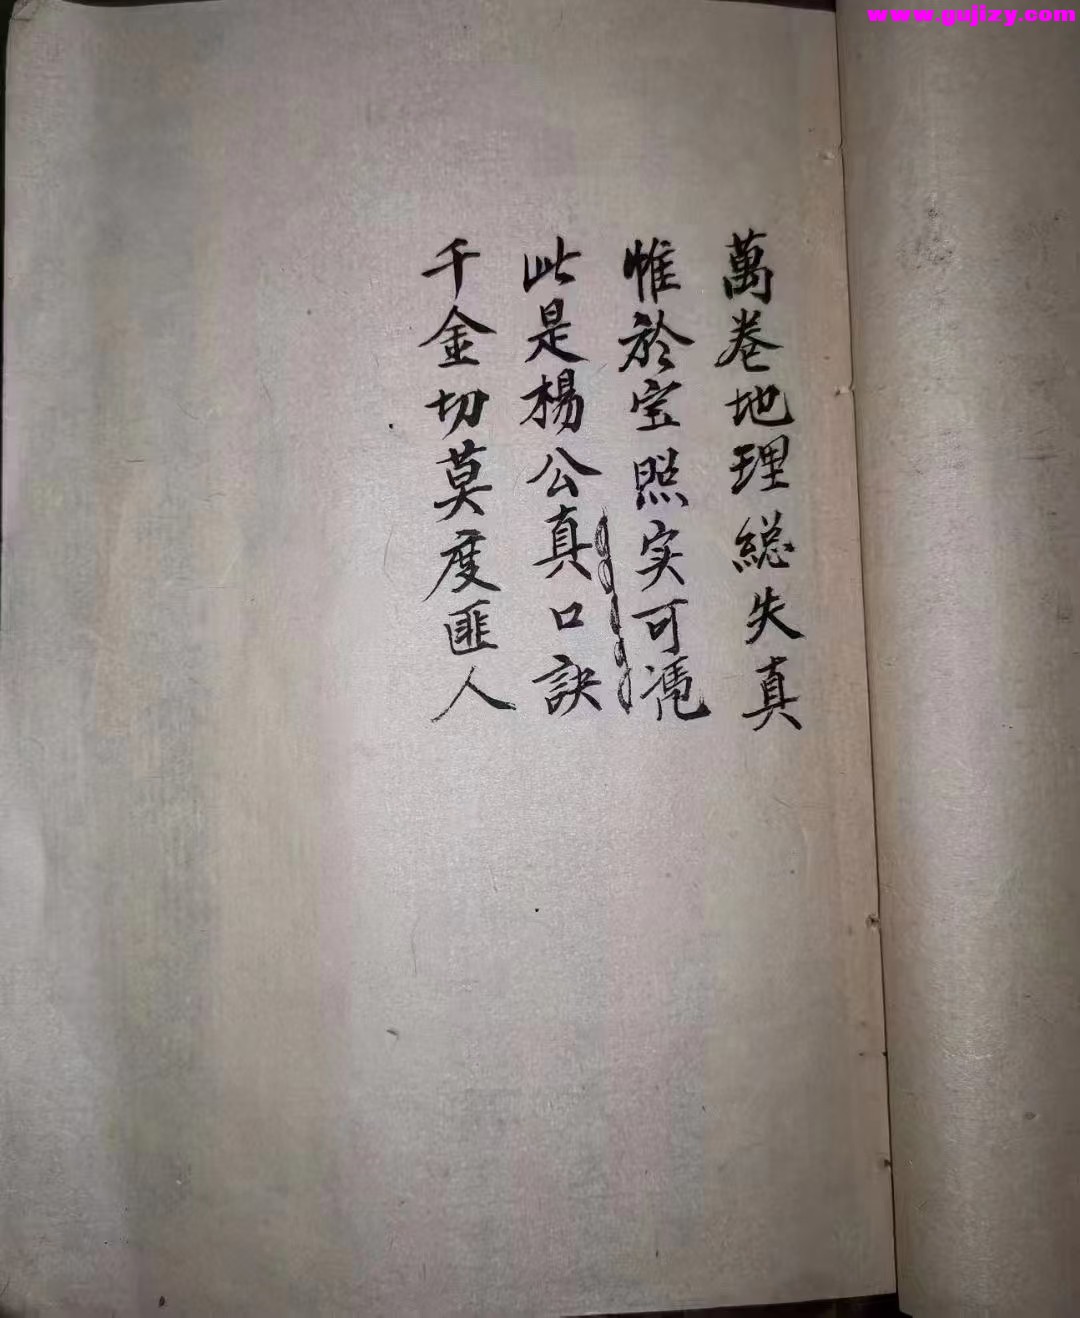 www.gujizy.com
萬卷地理総失真
惟於宝照实可凴
此是楊公真口訣
千金切莫度匪人